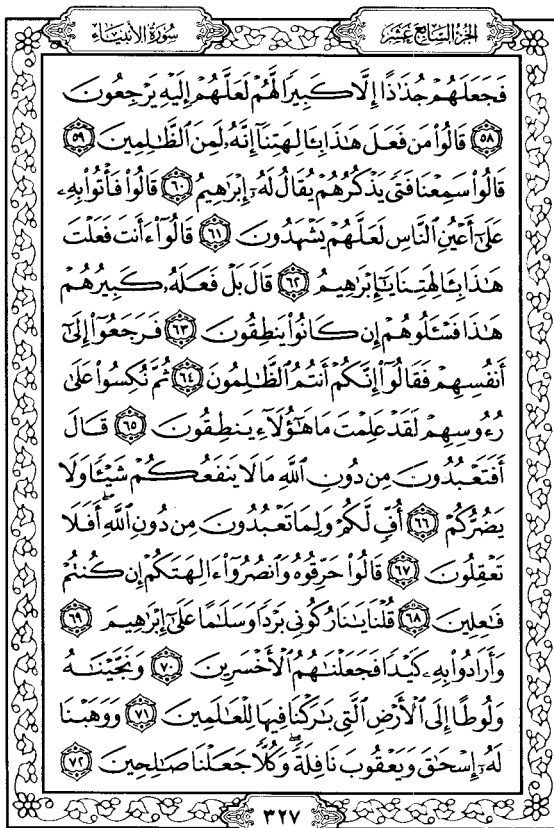 سُورَةُ الأَنبِيَاءِ
الجُزءُ السَّابِعَ عَشَرَ
فَجَعَلَهُمْ جُذَٰذًا إِلَّا كَبِيرًا لَّهُمْ لَعَلَّهُمْ إِلَيْهِ يَرْجِعُونَ
٥٨ قَالُوا۟ مَن فَعَلَ هَٰذَا بِـَٔالِهَتِنَآ إِنَّهُۥ لَمِنَ ٱلظَّٰلِمِينَ ٥٩
قَالُوا۟ سَمِعْنَا فَتًى يَذْكُرُهُمْ يُقَالُ لَهُۥٓ إِبْرَٰهِيمُ ٦٠ قَالُوا۟ فَأْتُوا۟ بِهِۦ
عَلَىٰٓ أَعْيُنِ ٱلنَّاسِ لَعَلَّهُمْ يَشْهَدُونَ ٦١ قَالُوٓا۟ ءَأَنتَ فَعَلْتَ
هَٰذَا بِـَٔالِهَتِنَا يَٰٓإِبْرَٰهِيمُ ٦٢ قَالَ بَلْ فَعَلَهُۥ كَبِيرُهُمْ
هَٰذَا فَسْـَٔلُوهُمْ إِن كَانُوا۟ يَنطِقُونَ ٦٣ فَرَجَعُوٓا۟ إِلَىٰٓ
أَنفُسِهِمْ فَقَالُوٓا۟ إِنَّكُمْ أَنتُمُ ٱلظَّٰلِمُونَ ٦٤ ثُمَّ نُكِسُوا۟ عَلَىٰ
رُءُوسِهِمْ لَقَدْ عَلِمْتَ مَا هَٰٓؤُلَآءِ يَنطِقُونَ ٦٥ قَالَ
أَفَتَعْبُدُونَ مِن دُونِ ٱللَّهِ مَا لَا يَنفَعُكُمْ شَيْـًٔا وَلَا
يَضُرُّكُمْ ٦٦ أُفٍّ لَّكُمْ وَلِمَا تَعْبُدُونَ مِن دُونِ ٱللَّهِ ۖ أَفَلَا
تَعْقِلُونَ ٦٧ قَالُوا۟ حَرِّقُوهُ وَٱنصُرُوٓا۟ ءَالِهَتَكُمْ إِن كُنتُمْ
فَٰعِلِينَ ٦٨ قُلْنَا يَٰنَارُ كُونِى بَرْدًا وَسَلَٰمًا عَلَىٰٓ إِبْرَٰهِيمَ ٦٩
وَأَرَادُوا۟ بِهِۦ كَيْدًا فَجَعَلْنَٰهُمُ ٱلْأَخْسَرِينَ ٧٠ وَنَجَّيْنَٰهُ
وَلُوطًا إِلَى ٱلْأَرْضِ ٱلَّتِى بَٰرَكْنَا فِيهَا لِلْعَٰلَمِينَ ٧١ وَوَهَبْنَا
لَهُۥٓ إِسْحَٰقَ وَيَعْقُوبَ نَافِلَةً ۖ وَكُلًّا جَعَلْنَا صَٰلِحِينَ ٧٢
٣٢٧